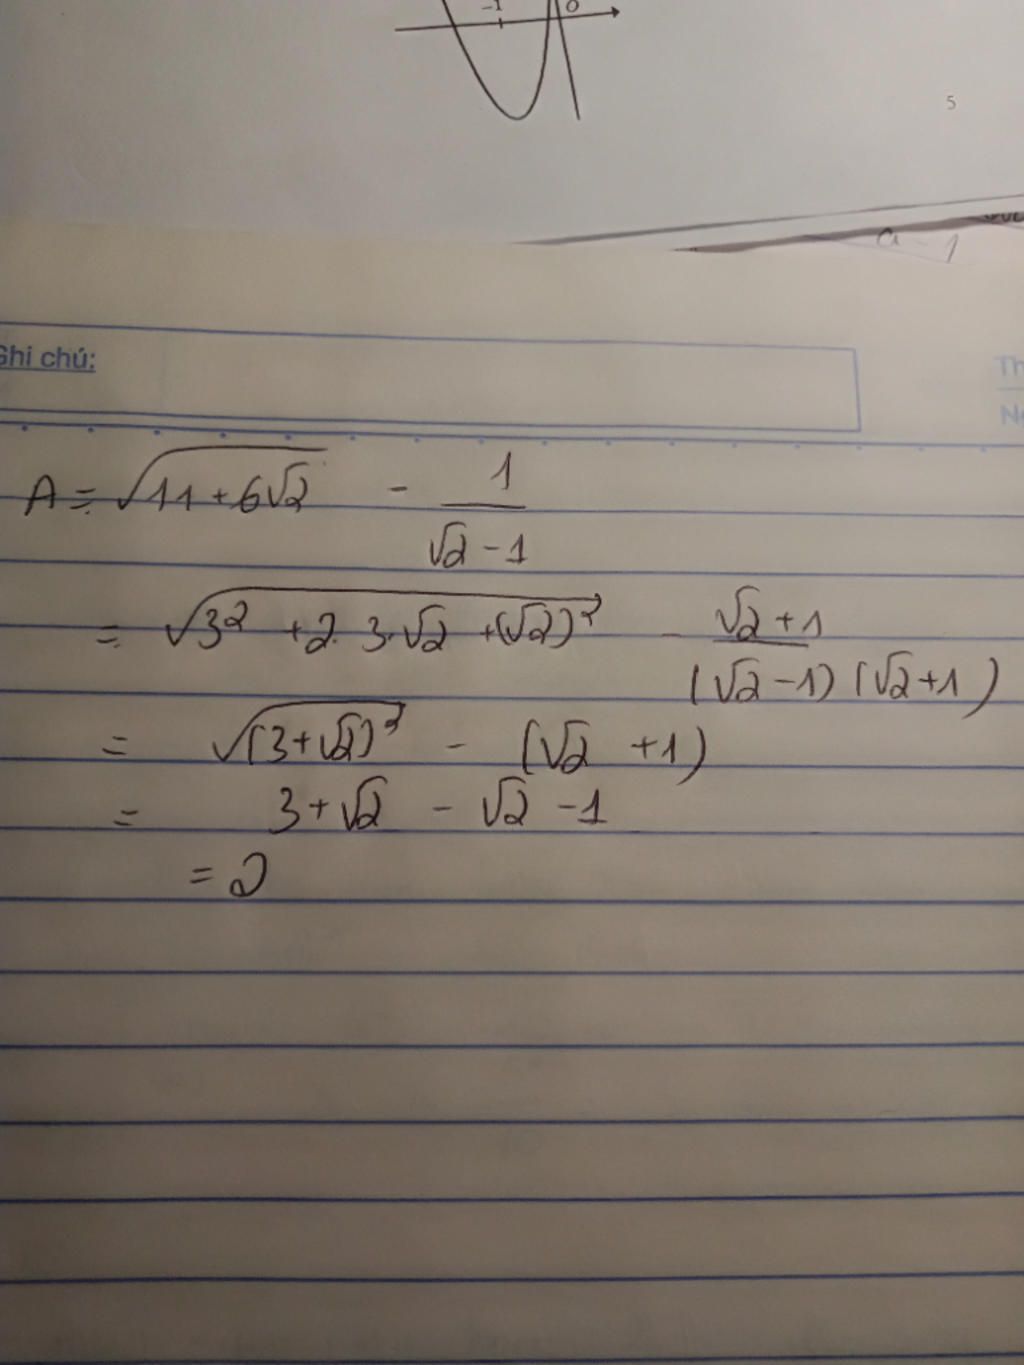 -1 0
5
a - 1
Ghi chú:
Th
A = √(11 + 6√2) - 1/(√2 - 1)
= √(3² + 2. 3.√2 + (√2)²) - (√2 + 1)/((√2 - 1)(√2 + 1))
= √((3 + √2)²) - (√2 + 1)
= 3 + √2 - √2 - 1
= 2